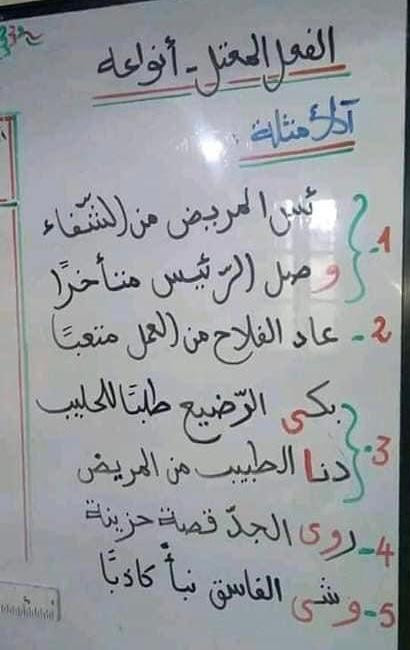 الفعل المعتل - أنواعه
الأمثلة
1- ئس المريض من الشّفاء
وصل الرّئيس متأخرًا
2- عاد الفلاح من العمل متعبًا
3- بكى الرّضيع طلبًا للحليب
دنا الطبيب من المريض
4- روى الجدّ قصة حزينة
5- وشى الفاسق نبأً كاذبًا